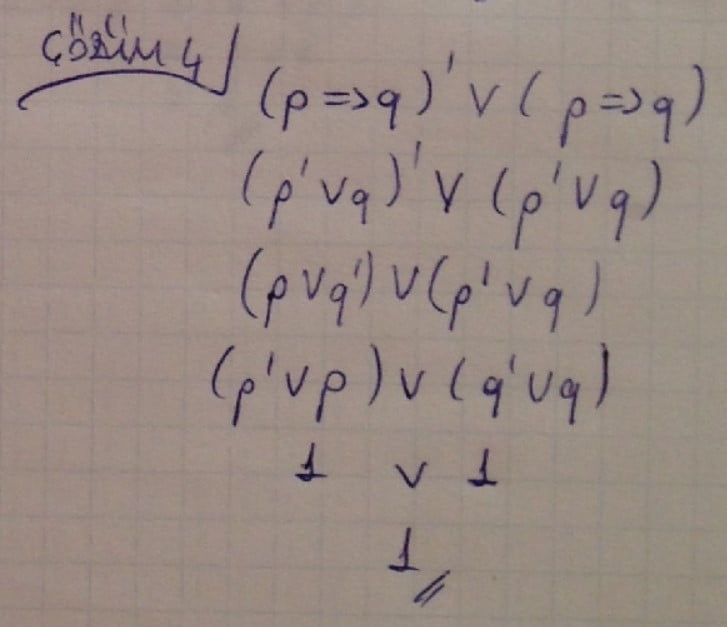 Çözüm 4
(p => q)' ∨ (p => q)
(p' ∨ q)' ∨ (p' ∨ q)
(p ∨ q') ∨ (p' ∨ q)
(p' ∨ p) ∨ (q' ∨ q)
1 ∨ 1
1